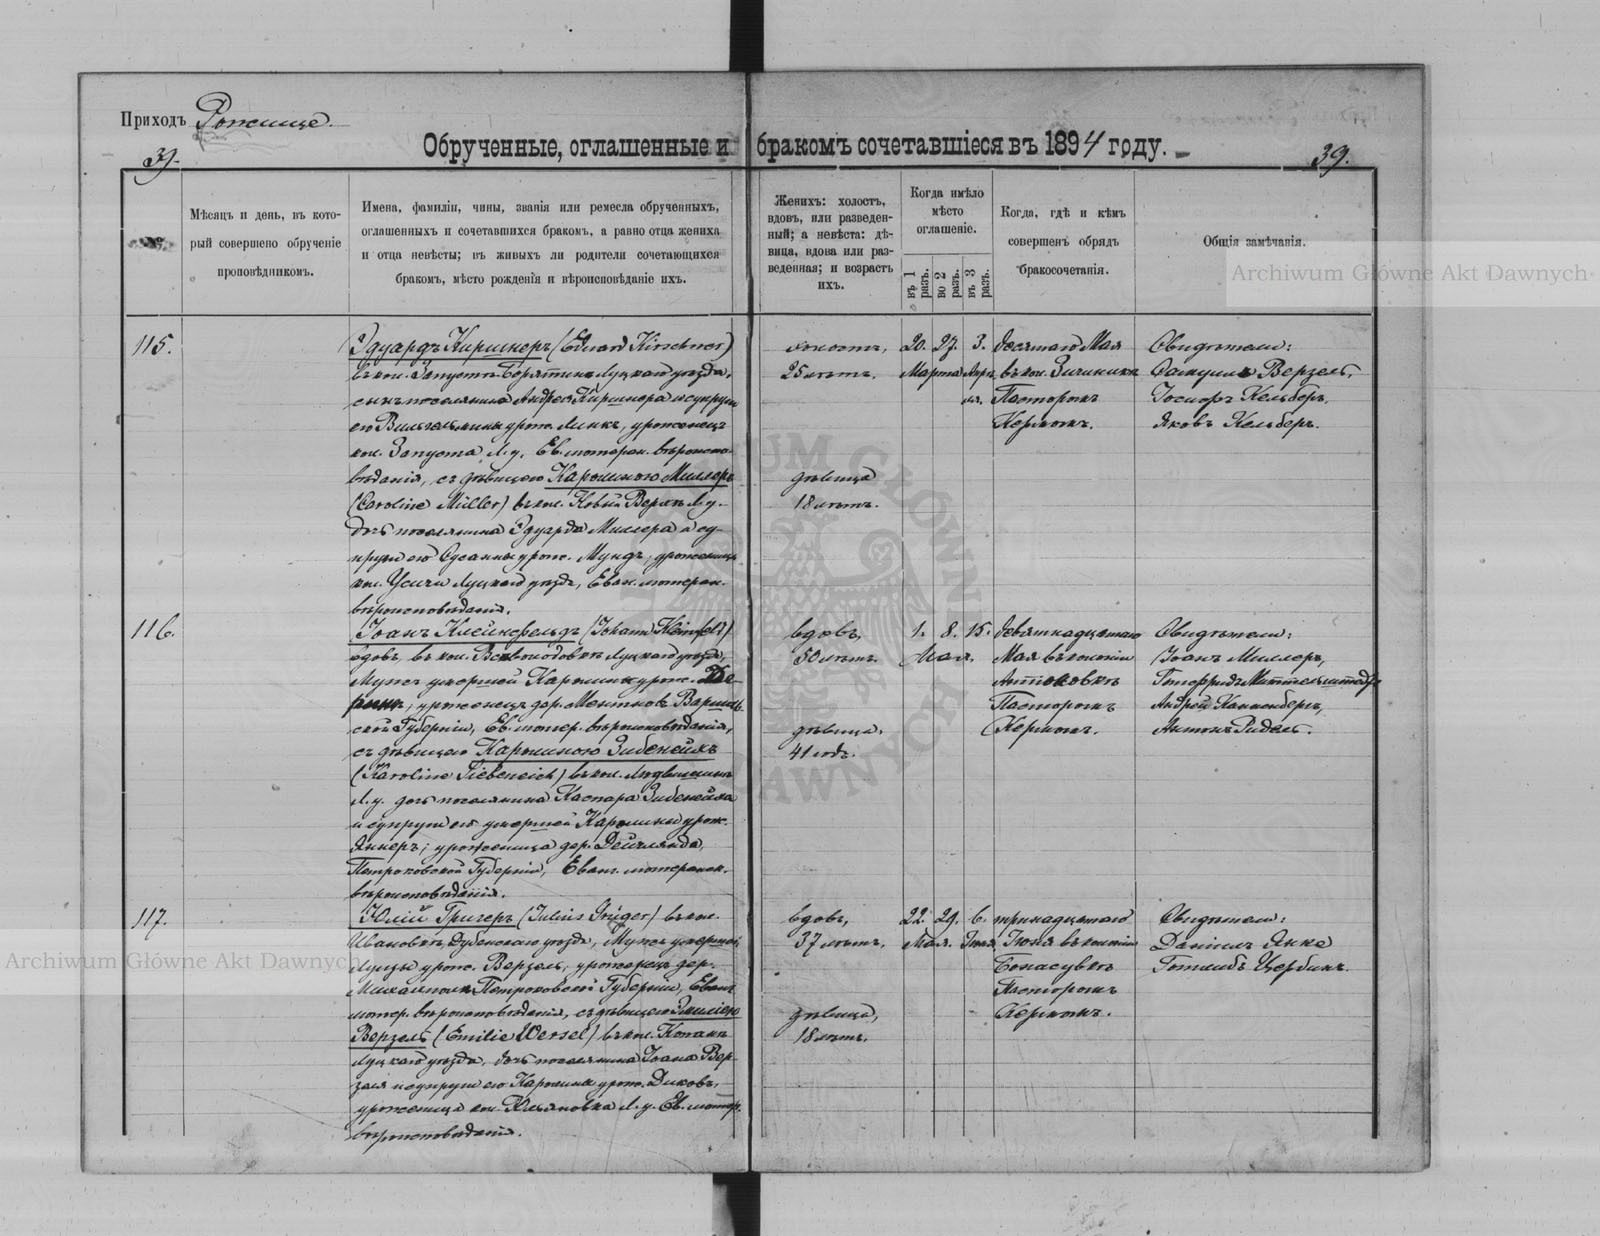 Приходъ Рожище.
39.
Обрученные, оглашенные и бракомъ сочетавшіеся въ 1894 году.
39.
№
Мѣсяцъ и день, въ кото-
рый совершено обрученіе
проповѣдникомъ.
Имена, фамиліи, чины, званія или ремесла обрученныхъ,
оглашенныхъ и сочетавшихся бракомъ, а равно отца жениха
и отца невѣсты; въ живыхъ ли родители сочетающихся
бракомъ, мѣсто рожденія и вѣроисповѣданіе ихъ.
Женихъ: холостъ,
вдовъ, или разведен-
ный; а невѣста: дѣ-
вица, вдова или раз-
веденная; и возрастъ
ихъ.
Когда имѣло
мѣсто
оглашеніе.
въ 1 разъ.
во 2 разъ.
въ 3 разъ.
Когда, гдѣ и кѣмъ
совершенъ обрядъ
бракосочетанія.
Общія замѣчанія.
Archiwum Główne Akt Dawnych
115.
Эдуардъ Киршнеръ (Eduard Kirschner)
въ кол. Запустъ Борятинъ Луцкаго уѣзда,
сынъ поселянина Андрея Киршнера и супруги
его Вильгельмины урож. Линкъ, уроженецъ
кол. Запуста Л. у. Ев. лютеран. вѣроиспо-
вѣданія, съ дѣвицею Каролиною Миллеръ
(Caroline Müller) въ кол. Новый Верхъ Л. у.
дочь поселянина Эдуарда Миллера и су-
пруги его Сусанны урож. Мундъ, уроженица
кол. Усичи Луцкаго уѣзда, Еван. лютеран.
вѣроисповѣданія.
холостъ,
25 лѣтъ.
дѣвица
18 лѣтъ.
20. 27. 3.
Марта Апрѣ
ля.
десятаго Мая
въ кол.
Пасторомъ
Кермомъ.
Свидѣтели:
Самуилъ Верзель,
Іосифъ Кельберъ,
Яковъ Кельберъ.
116.
Іоанъ Клейнфельдъ (Johann Kleinfeld)
вдовъ, въ кол. Всеволодовкѣ Луцкаго уѣзда,
Мужъ умершей Каролины урож. Де-
, уроженецъ дер. Ментковъ Варшав-
ской Губерніи, Ев. лютер. вѣроисповѣданія,
съ дѣвицею Каролиною Зибенейхъ
(Karoline Siebeneich) въ кол. Людвишинъ
Л. у. дочь поселянина Каспара Зибенейха
и супруги его умершей Каролины урож.
Яннеръ; уроженица дер. Дейчлянда
Петроковской Губерніи, Еван. лютеранск.
вѣроисповѣданія.
вдовъ,
50 лѣтъ.
дѣвица,
41 годъ.
1. 8. 15.
Мая.
девятнадцатаго
Мая въ колоніи
Антоновкѣ
Пасторомъ
Кермомъ.
Свидѣтели:
Іоанъ Миллеръ,
Готфридъ Миттельштедтъ
Андрей Канненбергъ,
Антонъ Ридель.
117.
Юлій Григеръ (Julius Grüger) въ кол.
Ивановкѣ, Дубенскаго уѣзда, Мужъ умершей
Луизы урож. Верзель, уроженецъ дер.
Михалполь Петроковской Губерніи, Еван.
лютер. вѣроисповѣданія, съ дѣвицею Эмиліею
Верзель (Emilie Wersel) въ кол. Копани
Луцкаго уѣзда, дочь поселянина Іоана Вер-
зеля и супруги его Каролины урож. Диковъ,
уроженица кол. Юльяновка Л. у. Ев. лютер.
вѣроисповѣданія.
вдовъ,
37 лѣтъ.
дѣвица,
18 лѣтъ.
22. 29. 6.
Мая. Іюня
тринадцатаго
Іюня въ колоніи
Бонасувкѣ
Пасторомъ
Кермомъ.
Свидѣтели:
Даніилъ Янке
Готлибъ Цербинъ.
Archiwum Główne Akt Dawnych